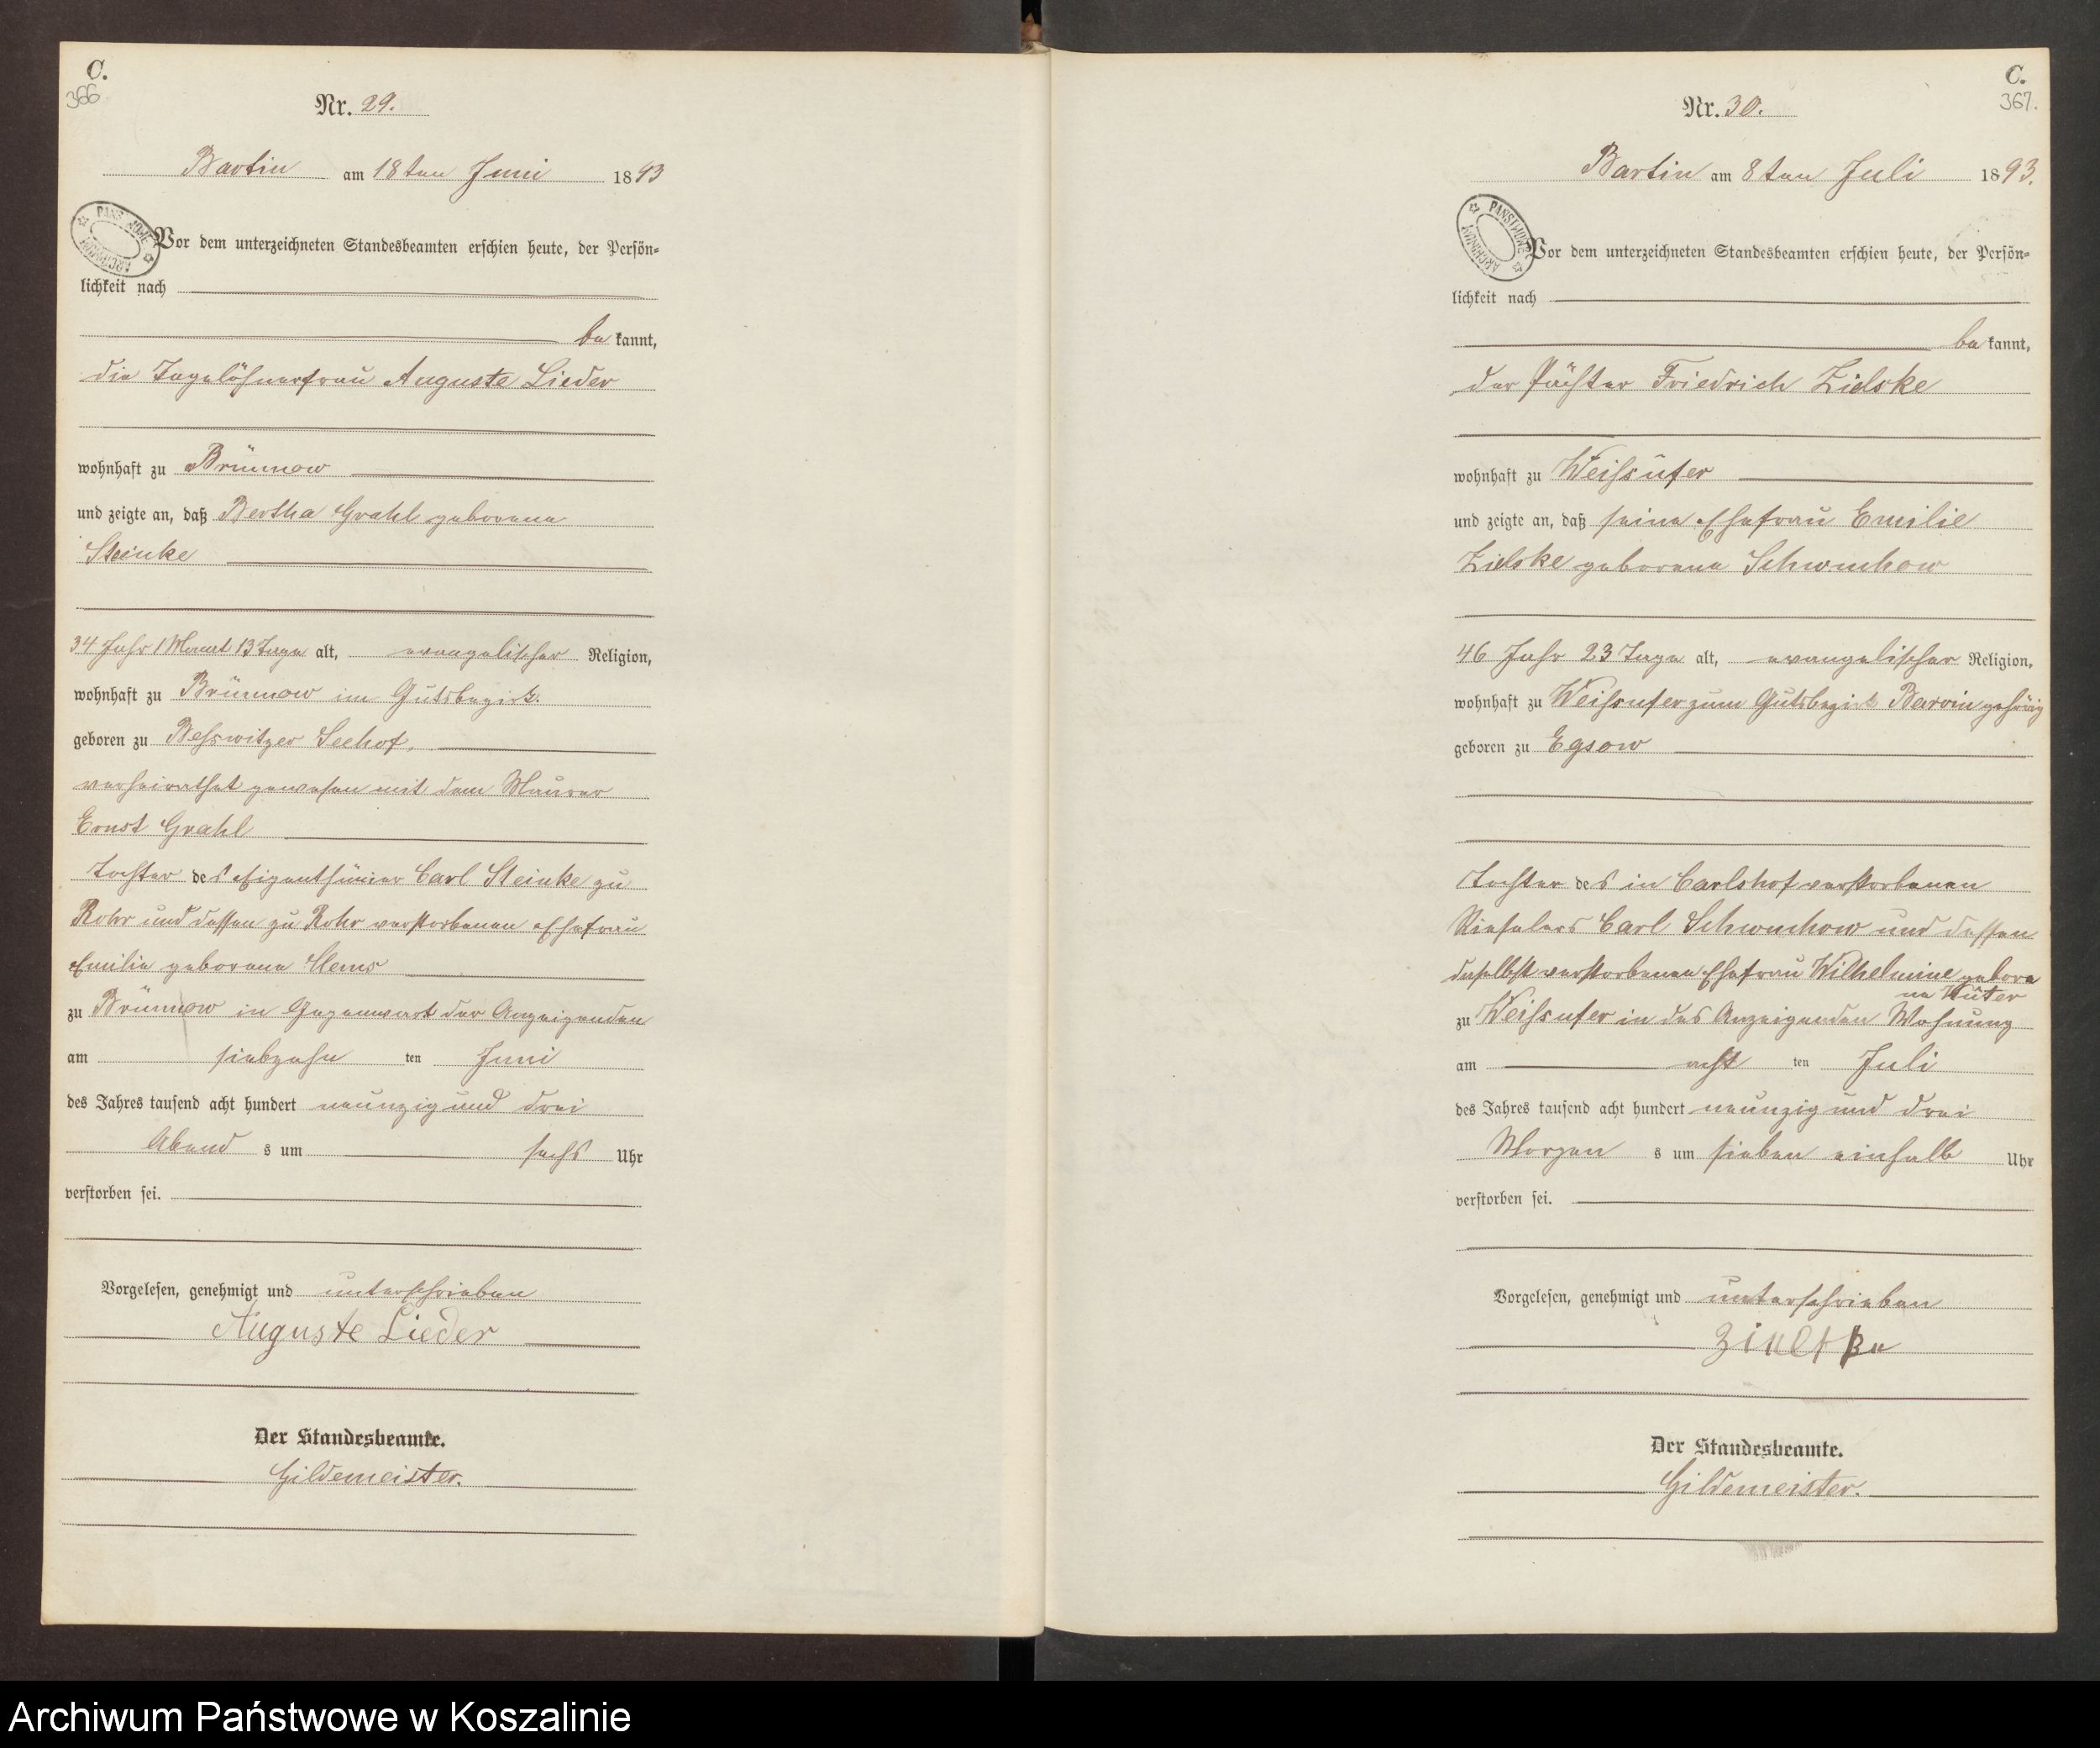 C.
366
Nr. 29.
Bartin am 18ten Juni 1893
Vor dem unterzeichneten Standesbeamten erschien heute, der Persön-
lichkeit nach
be kannt,
die Tagelöhnerfrau Auguste Lieder
wohnhaft zu Brünnow
und zeigte an, daß Bertha Grahl geborene
Steinke
34 Jahr 1 Monat 13 Tage alt, evangelischer Religion,
wohnhaft zu Brünnow im Gutsbezirk.
geboren zu Besswitzer Seehof,
verheirathet gewesen mit dem Maurer
Ernst Grahl
Tochter des Eigenthümer Carl Steinke zu
Rohr und dessen zu Rohr verstorbenen Ehefrau
Emilie geborene
zu Brünnow in Gegenwart der Anzeigenden
am siebzehn ten Juni
des Jahres tausend acht hundert neunzig und drei
Abend s um sechs Uhr
verstorben sei.
Vorgelesen, genehmigt und unterschrieben
Auguste Lieder
Der Standesbeamte.
Gildemeister.
C.
367.
Nr. 30.
Bartin am 8ten Juli 1893.
PANSTWOWE
ARCHIWUM
Vor dem unterzeichneten Standesbeamten erschien heute, der Persön-
lichkeit nach
be kannt,
der Pächter Friedrich Zielske
wohnhaft zu Weißufer
und zeigte an, daß seine Ehefrau Emilie
Zielske geborene Schwuchow
46 Jahr 23 Tage alt, evangelischer Religion,
wohnhaft zu Weißufer zum Gutsbezirk Barvin gehörig
geboren zu Egsow
Tochter des in Carlshof verstorbenen
Rieselers Carl Schwuchow und dessen
daselbst verstorbenen Ehefrau Wilhelmine gebore
ne
zu Weißufer in des Anzeigenden Wohnung
am acht ten Juli
des Jahres tausend acht hundert neunzig und drei
Morgen s um sieben einhalb Uhr
verstorben sei.
Vorgelesen, genehmigt und unterschrieben
Der Standesbeamte.
Gildemeister.
Archiwum Państwowe w Koszalinie